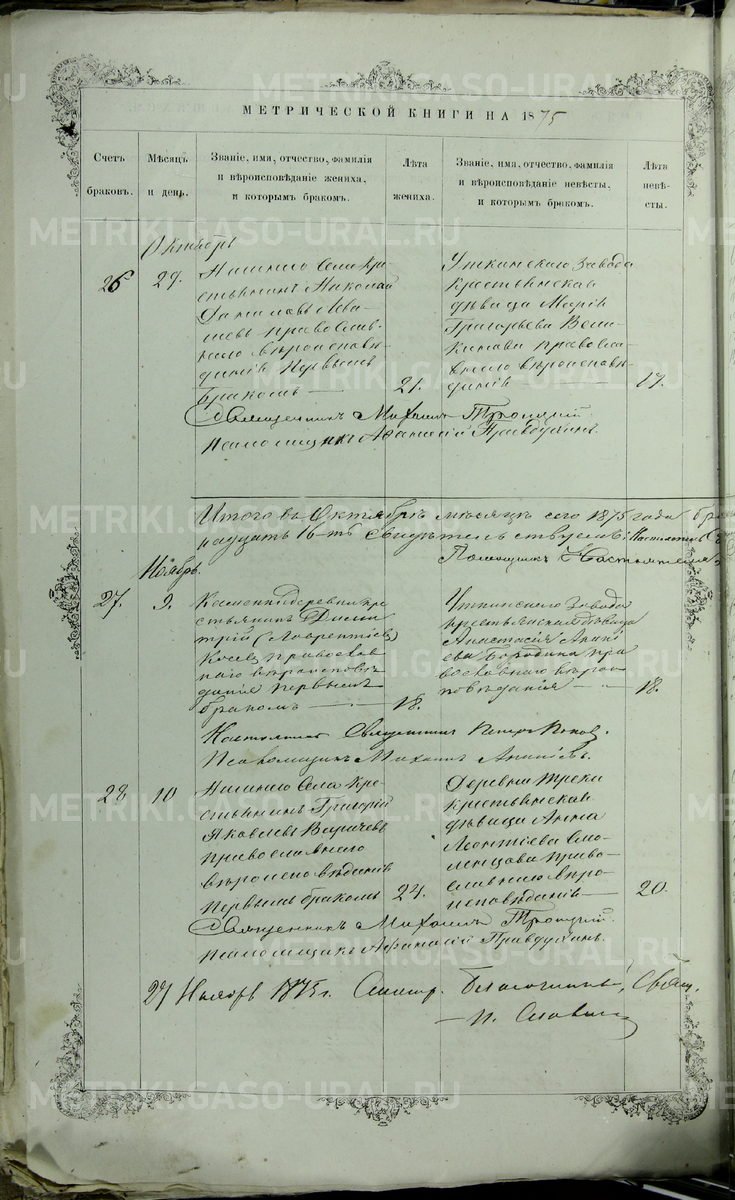 МЕТРИЧЕСКОЙ КНИГИ НА 1875
Счетъ браковъ.
Мѣсяцъ и день.
Званіе, имя, отчество, фамилія и вѣроисповѣданіе жениха, и которымъ бракомъ.
Лѣта жениха.
Званіе, имя, отчество, фамилія и вѣроисповѣданіе невѣсты, и которымъ бракомъ.
Лѣта невѣсты.
Октябрь
26
29.
Нашего Села кре-
стьянинъ Николай
Даниловъ
православ-
наго вѣроисповѣ-
данія первымъ
бракомъ
21.
Уткинскаго завода
крестьянская
дѣвица Марія
Григорьева
православ-
наго вѣроисповѣ-
данія
17.
Священникъ Михаилъ Троицкій
Псаломщикъ Афанасій Правдухинъ.
Итого въ Октябрѣ мѣсяцѣ сего 1875 года
16-ть
Помощникъ Настоятеля
Ноябрь.
27.
9.
Каменки деревни кре-
стьянинъ Дими-
трій (Лаврентіев)
православ
наго вѣроисповѣ
данія первымъ
бракомъ
18.
Уткинскаго Завода
крестьянская дѣвица
Анастасія Анані
ева Бородина пра
вославнаго вѣрои
повѣданія
18.
Настоятель Священникъ Петръ Поповъ.
Псаломщикъ Михаилъ
28
10
Нашего Села кре-
стьянинъ Григорій
Яковлевъ
православнаго
вѣроисповѣданія
первымъ бракомъ
24.
Деревни Треки
крестьянская
дѣвица Анна
Леонтіева
право-
славнаго вѣро-
исповѣданія
20.
Священникъ Михаилъ Троицкій.
Псаломщикъ Афанасій Правдухинъ.
27 Ноября 1875 г.
METRIKI.GASO-URAL.RU